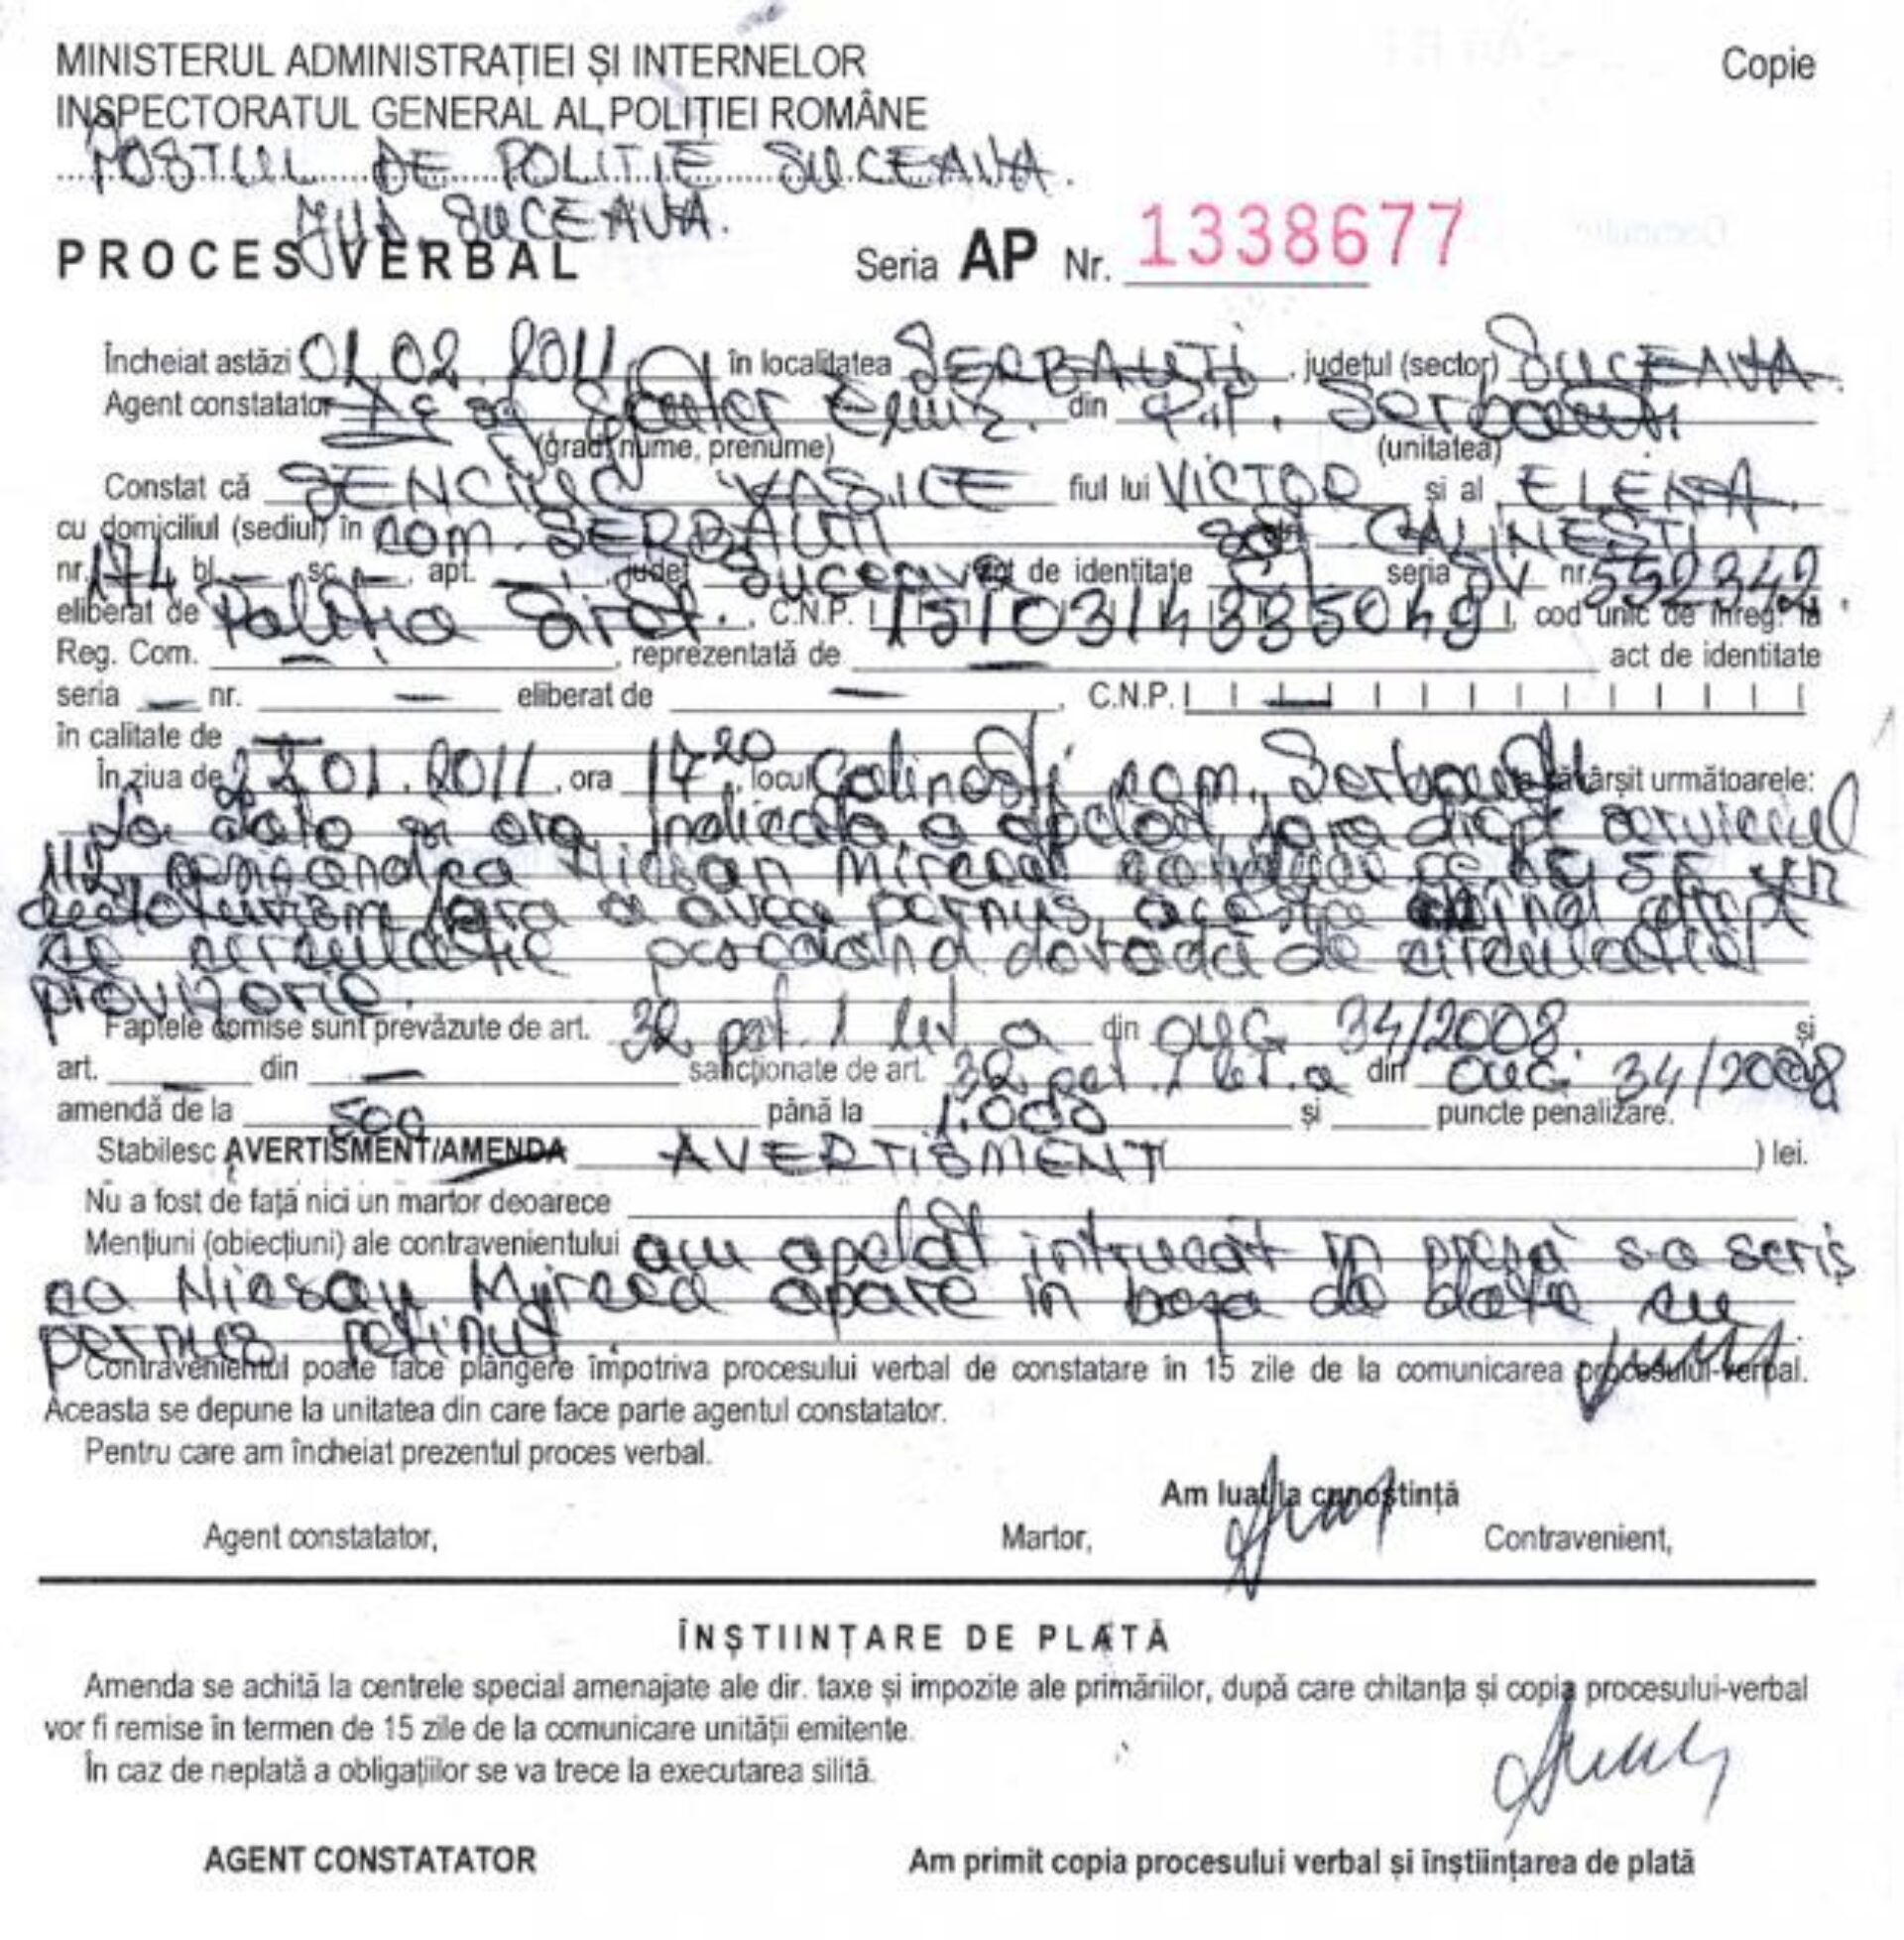 MINISTERUL ADMINISTRAȚIEI ȘI INTERNELOR Copie
INSPECTORATUL GENERAL AL POLIȚIEI ROMÂNE
POSTUL DE POLITIE SUCEAVA.
JUD. SUCEAVA.
PROCES VERBAL Seria AP Nr. 1338677
Încheiat astăzi 01.02.2011 în localitatea SERBAUTI, județul (sector) SUCEAVA.
Agent constatator din P.P. Serbauti
(grad, nume, prenume) (unitatea)
Constat că VASILE fiul lui VICTOR și al ELENA.
cu domiciliul (sediul) în com. SERBAUTI sat CALINESTI
nr. 174 bl. — sc. — , apt. — , județ Suceava act de identitate C.I. seria SV nr. 552342.
eliberat de Politia Siret. , C.N.P. cod unic de înreg. la
Reg. Com. — , reprezentată de — act de identitate
seria — nr. — eliberat de — , C.N.P. —
în calitate de —
În ziua de 01.2011 , ora 17 20 , locul Calinesti com. Serbauti a săvârșit următoarele:
La data si ora indicata a apelat fara drept serviciul
112 Nicsan Mircea
autoturism fara a avea permis, acesta avind drept
de circulatie posedand dovada de circulatie
provizorie.
Faptele comise sunt prevăzute de art. 32 pct. 1 lit. a din OUG 34/2008 și
art. — din — sancționate de art. 32 pct. 1 lit. a din OUG 34/2008 cu
amendă de la 500 până la 1.000 și puncte penalizare.
Stabilesc AVERTISMENT/AMENDA AVERTISMENT ) lei.
Nu a fost de față nici un martor deoarece
Mențiuni (obiecțiuni) ale contravenientului am apelat intrucat in presă s-a scris
ca Nicsan Mircea apare in baza de date cu
permis retinut
Contravenientul poate face plângere împotriva procesului verbal de constatare în 15 zile de la comunicarea procesului-verbal.
Aceasta se depune la unitatea din care face parte agentul constatator.
Pentru care am încheiat prezentul proces verbal.
Am luat la cunoștință
Agent constatator, Martor, Contravenient,
ÎNȘTIINȚARE DE PLATĂ
Amenda se achită la centrele special amenajate ale dir. taxe și impozite ale primăriilor, după care chitanța și copia procesului-verbal
vor fi remise în termen de 15 zile de la comunicare unității emitente.
În caz de neplată a obligațiilor se va trece la executarea silită.
AGENT CONSTATATOR Am primit copia procesului verbal și înștiințarea de plată